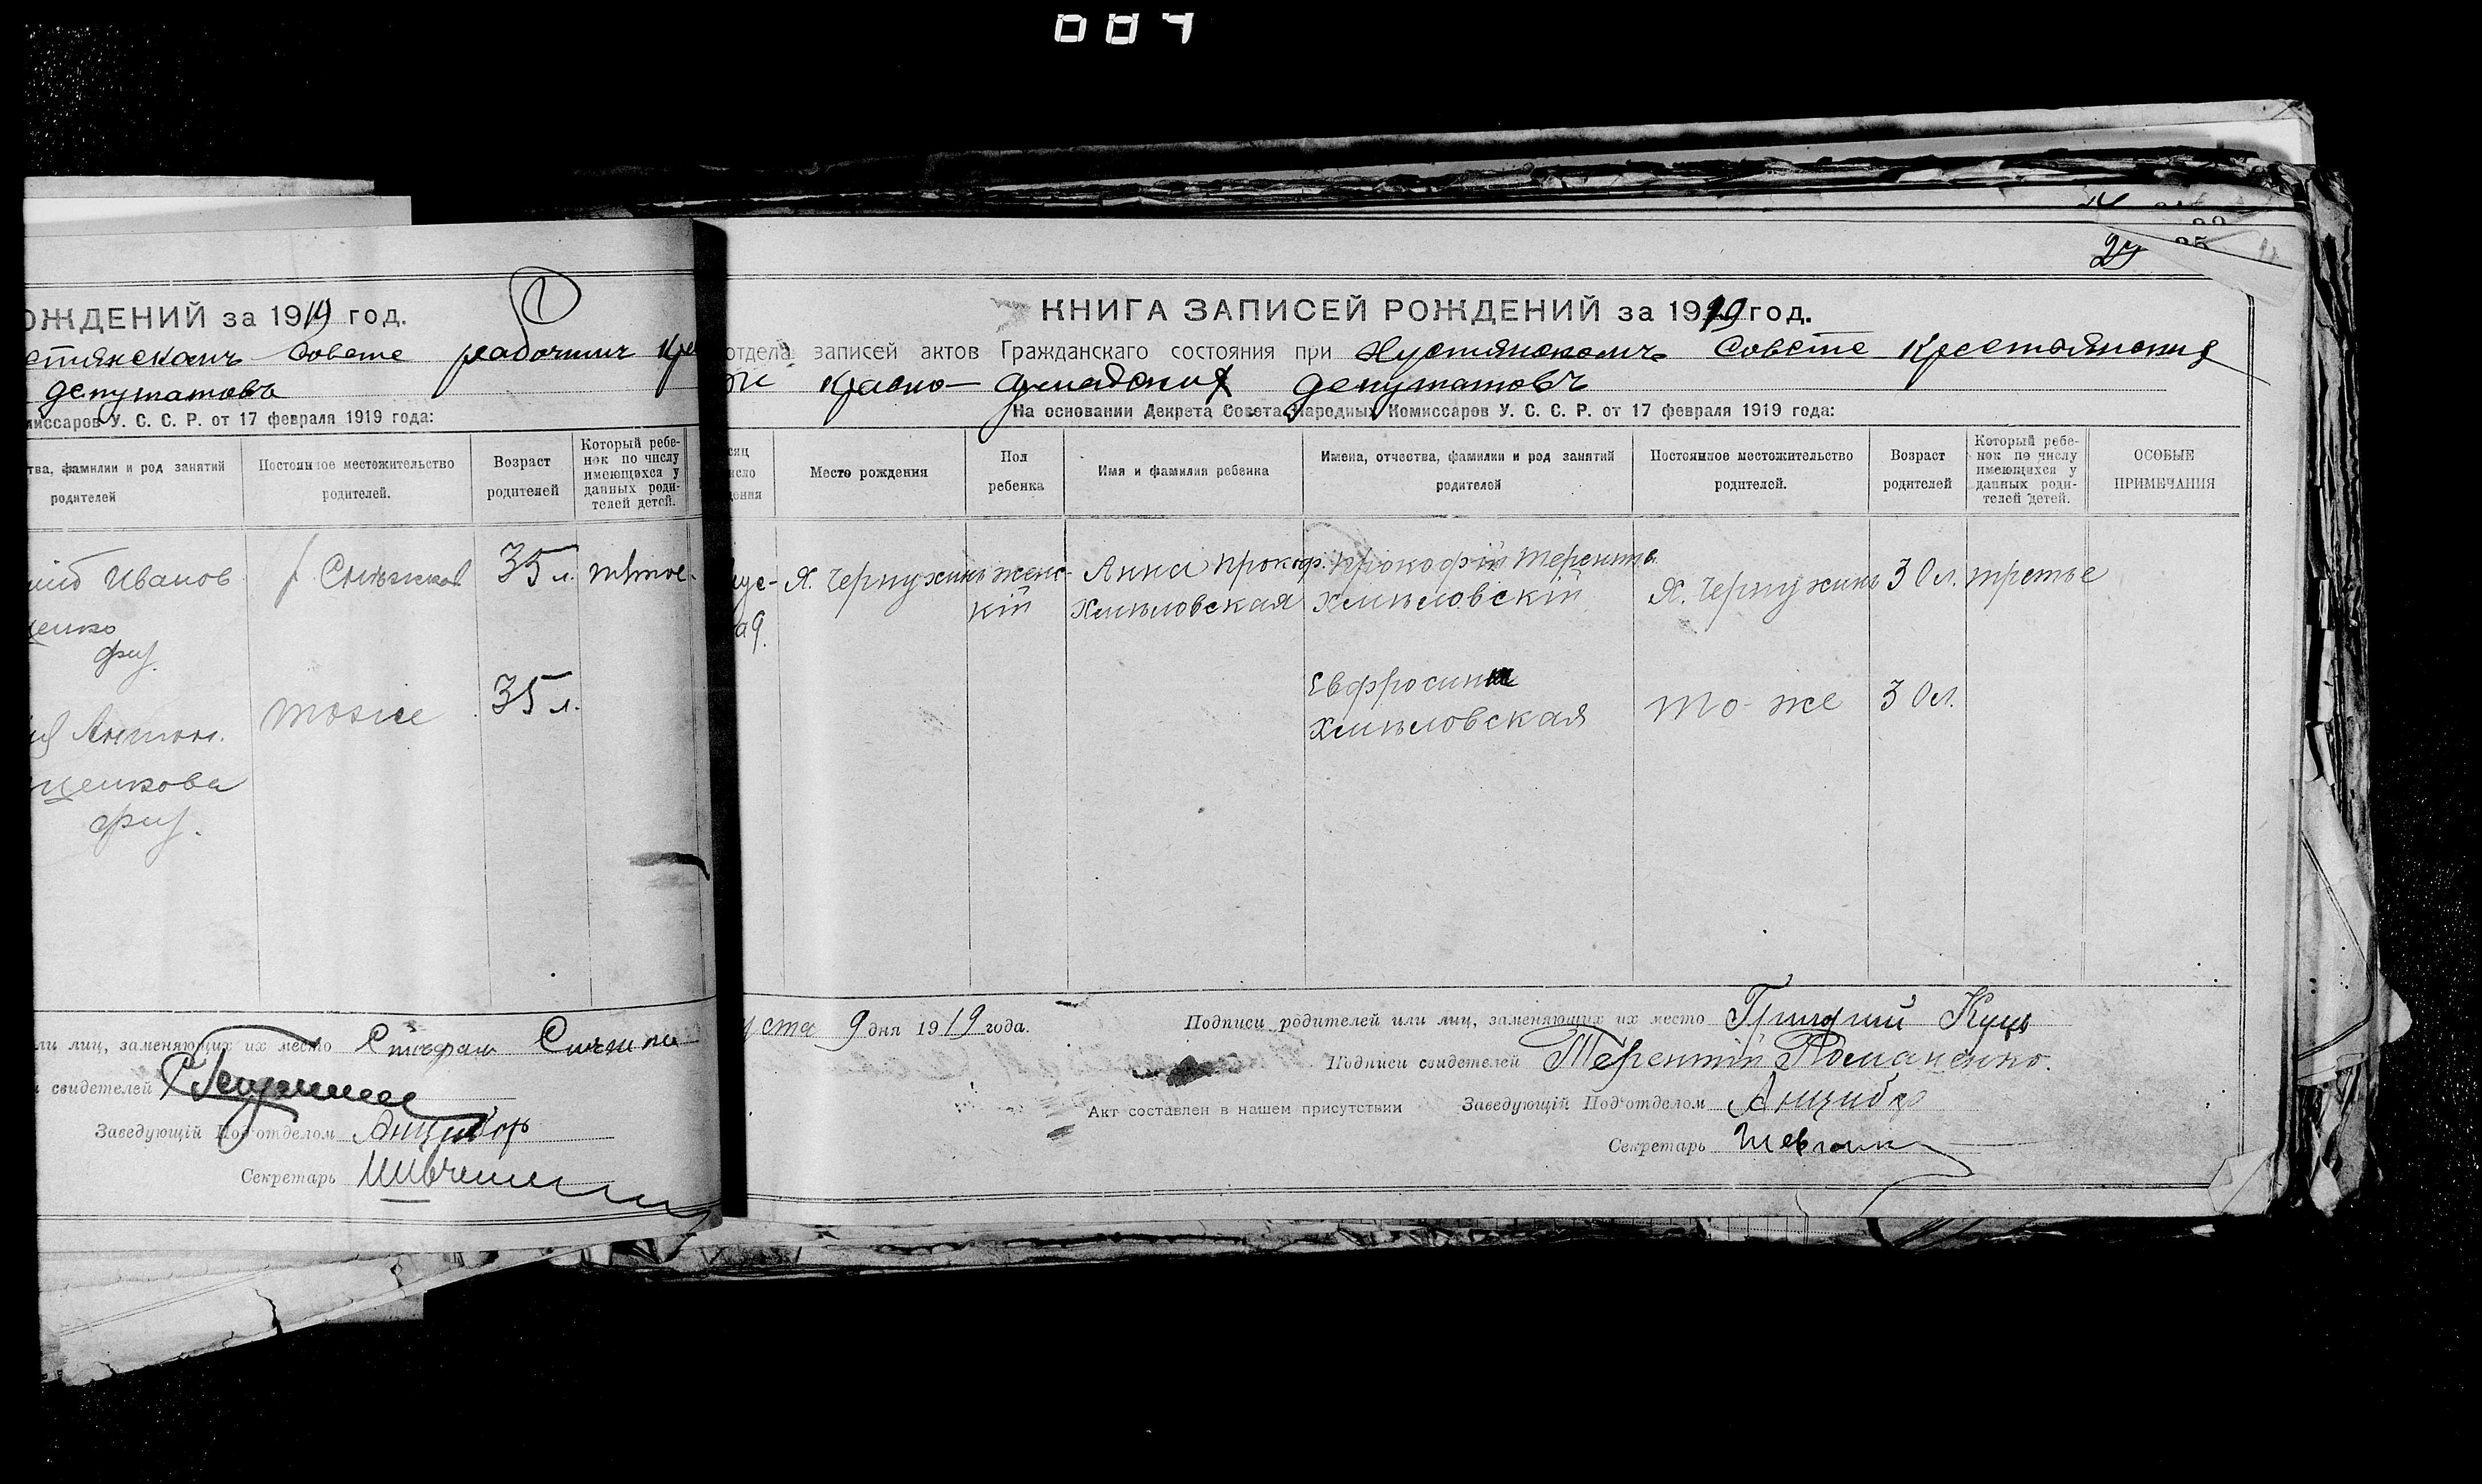 007
ОЖДЕНИЙ за 1919 год.
1
стянскомъ Совете рабочих Кре
депутатовъ
миссаров У. С. С. Р. от 17 февраля 1919 года:
тва, фамилии и род занятий родителей
Постоянное местожительство родителей.
Возраст родителей
Который ребенок по числу имеющихся у данных родителей детей.
Иванов
35 л.
енко
тоже
35 л.
Антон.
ценкова
ли лиц, заменяющих их место Стефан
и свидетелей
Заведующій Под'отделом Анцибор
Секретарь
27
35
КНИГА ЗАПИСЕЙ РОЖДЕНИЙ за 1919 год.
отдела записей актов Гражданскаго состояния при Хустянскомъ Совѣте Крестьянских
Красно-Армейских депутатовъ
На основании Декрета Совета Народных Комиссаров У. С. С. Р. от 17 февраля 1919 года:
Место рождения
Пол ребенка
Имя и фамилия ребенка
Имена, отчества, фамилии и род занятий родителей
Постоянное местожительство родителей.
Возраст родителей
Который ребенок по числу имеющихся у данных родителей детей.
ОСОБЫЕ ПРИМЕЧАНИЯ
Х. Чернухинъ
женскій
Анна Прокоф. Хмѣловская
Прокофій Терентьв. Хмѣловскій
Х. Чернухинъ
30 л.
третье
а 9.
Евфросиния
Хмѣловская
то-же
30 л.
уста 9 дня 1919 года.
Подписи родителей или лиц, заменяющих их место Григорий Куць
Подписи свидетелей Терентій Романенко.
Акт составлен в нашем присутствии
Заведующій Под'отделом Анцибор
Секретарь